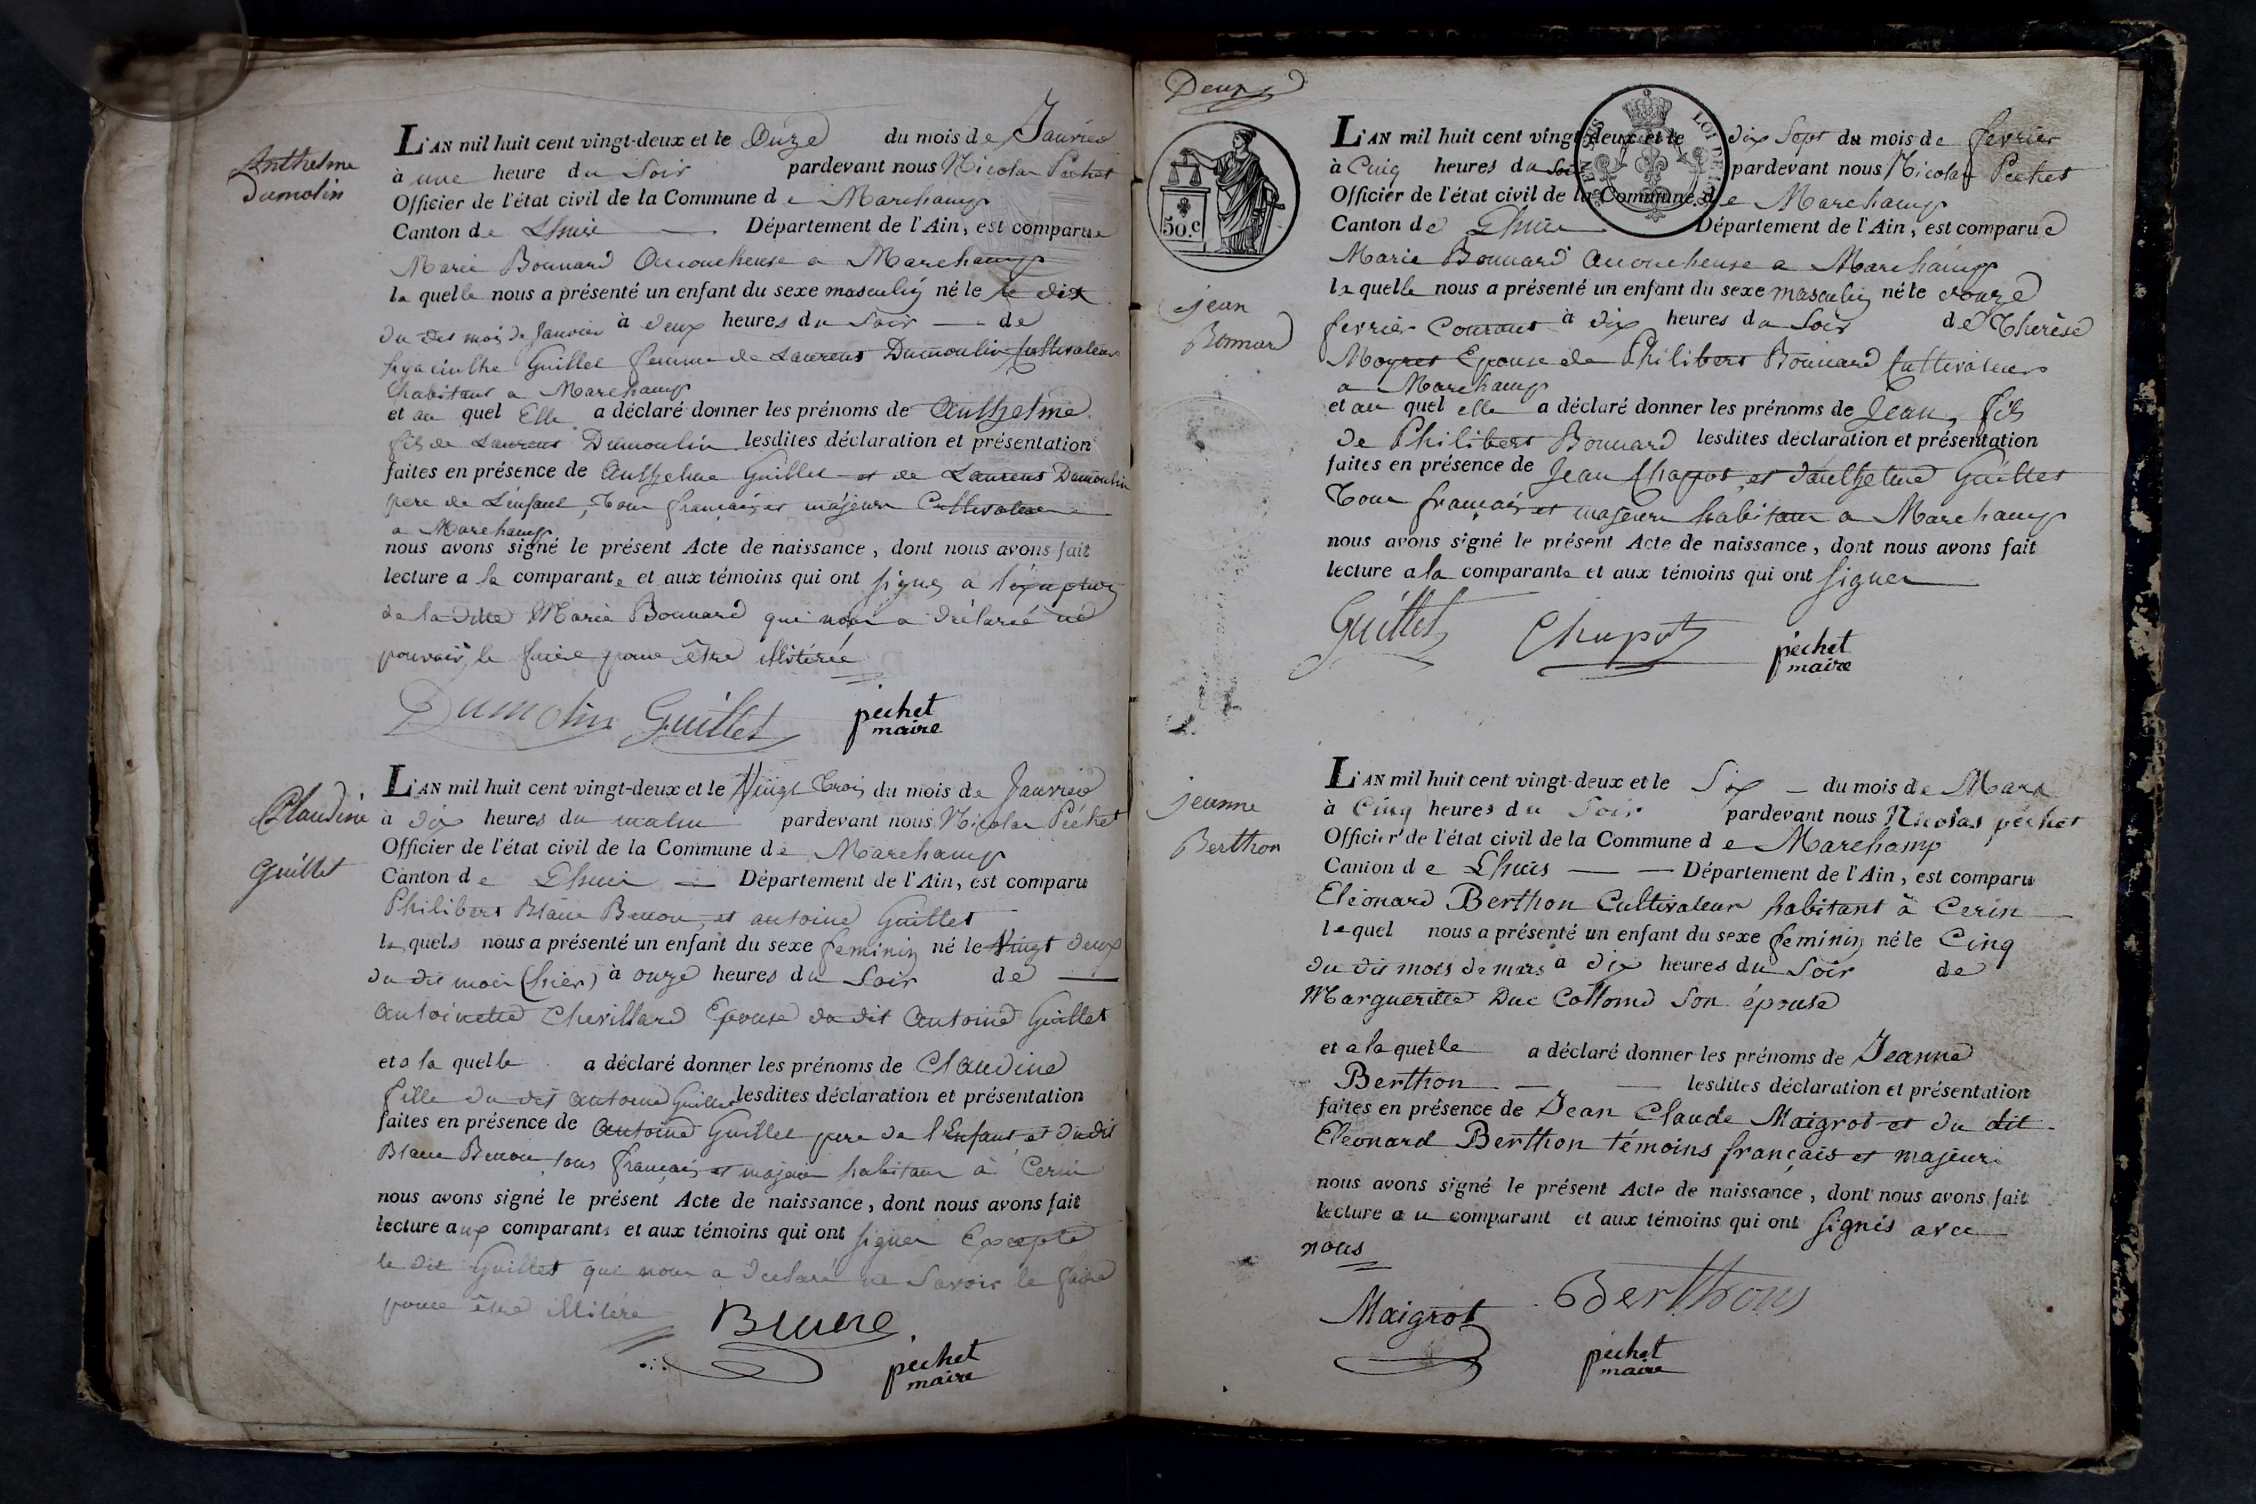 Anthelme
Dumolin
L'AN mil huit cent vingt-deux et le Onze du mois de Janvier
à une heure du Soir pardevant nous Nicolas Péchet
Officier de l'état civil de la Commune de Marchamp
Canton de Lhuis Département de l'Ain, est comparue
Marie Bonnard accoucheuse a Marchamp
la quelle nous a présenté un enfant du sexe masculin né le le dix
du dit mois de Janvier à deux heures du Soir de
hyacinthe Guillet femme de Laurent Dumoulin Cultivateur
habitant a Marchamp
et au quel Elle a déclaré donner les prénoms de Anthelme
fils de Laurent Dumoulin lesdites déclaration et présentation
faites en présence de Anthelme Guillet et de Laurent Dumoulin
pere de L'enfant, tous français et majeurs Cultivateurs
a Marchamp
nous avons signé le présent Acte de naissance, dont nous avons fait
lecture a la comparante et aux témoins qui ont signés a l'exeption
de la ditte Marie Bonnard qui nous a déclaré ne
pouvoir le faire pour être illitérée
Dumolin Guillet péchet
maire
Claudine
Guillet
L'AN mil huit cent vingt-deux et le Vingt trois du mois de Janvier
à dix heures du matin pardevant nous Nicolas Péchet
Officier de l'état civil de la Commune de Marchamp
Canton de Lhuis Département de l'Ain, est comparu
Philibert et antoine Guillet
lesquels nous a présenté un enfant du sexe feminin né le Vingt deux
du dit mois (hier) à onze heures du Soir de
antoinette Chevillard Epouse du dit Antoine Guillet
et a la quelle a déclaré donner les prénoms de Claudine
fille du dit antoine Guillet lesdites déclaration et présentation
faites en présence de Antoine Guillet pere de l'Enfant et dudit
tous français et majeurs habitans à Cerin
nous avons signé le présent Acte de naissance, dont nous avons fait
lecture aux comparants et aux témoins qui ont signer Excepté
le dit Guillet qui nous a déclaré ne Savoir le faire
pour être illitéré
péchet
maire
Deux
50.c
jean
Bonnard
L'AN mil huit cent vingt-deux et le dix Sept du mois de fevrier
à Cinq heures du soir pardevant nous Nicolas Péchet
Officier de l'état civil de la Commune de Marchamp
Canton de Lhuis Département de l'Ain, est comparue
Marie Bonnard accoucheuse a Marchamp
la quelle nous a présenté un enfant du sexe masculin né le douze
fevrier Courant à dix heures du Soir de Therèse
Moyret Epouse de Philibert Bonnard Cultivateur
a Marchamp
et au quel elle a déclaré donner les prénoms de Jean, fils
de Philibert Bonnard lesdites déclaration et présentation
faites en présence de Jean Chapot, et d'anthelme Guillet
Tous français et majeurs habitans a Marchamp
nous avons signé le présent Acte de naissance, dont nous avons fait
lecture a la comparante et aux témoins qui ont signer
Guillet Chapot péchet
maire
jeanne
Berthon
L'AN mil huit cent vingt-deux et le Six du mois de Mars
à Cinq heures du Soir pardevant nous Nicolas péchet
Officier de l'état civil de la Commune de Marchamp
Canton de Lhuis Département de l'Ain, est comparu
Eléonard Berthon Cultivateur habitant à Cerin
lequel nous a présenté un enfant du sexe feminin né le Cinq
du dit mois de mars à dix heures du Soir de
Margueritte Duc Collomd son épouse
et a la quelle a déclaré donner les prénoms de Jeanne
Berthon lesdites déclaration et présentation
faites en présence de Jean Claude Maigrot et du dit
Eléonard Berthon témoins français et majeurs
nous avons signé le présent Acte de naissance, dont nous avons fait
lecture au comparant et aux témoins qui ont signés avec
nous
Maigrot Berthon
péchet
maire